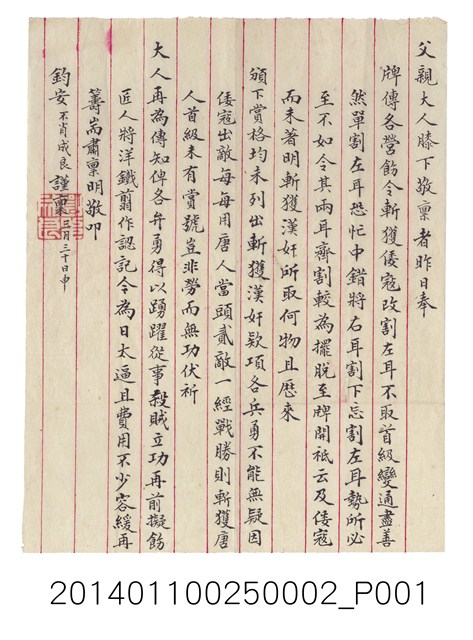 父親大人膝下敬禀者昨日奉
牌傳各營飭令斬獲倭寇改割左耳不取首級變通盡善
然單割左耳恐忙中錯將右耳割下忘割左耳勢所必
至不如令其兩耳齊割較為擺脫至牌開祗云及倭寇
而未著明斬獲漢奸所取何物且歷來
頒下賞格均未列出斬獲漢奸欵項各兵勇不能無疑因
倭寇出敵每每用唐人當頭貳敵一經戰勝則斬獲唐
人首級未有賞號豈非勞而無功伏祈
大人再為傳知俾各弁勇得以踴躍從事殺賊立功再前擬飭
匠人將洋鐵翦作認記令為日太逼且費用不少容緩再
籌耑肅禀明敬叩
鈞安 不肖成良謹禀 三月三十日申
201401100250002_P001